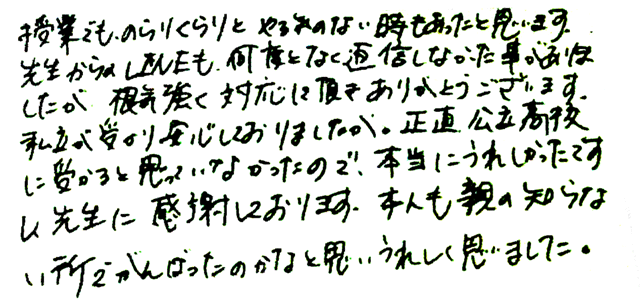 授業でも、のらりくらりと やる気のない時もあったと思います。
先生からのLINEも、何度となく返信しなかった事がありま
したが 根気強く対応して頂きありがとうございます。
私立が受かり安心しておりましたが。正直 公立高校
に受かると思っていなかったので、本当にうれしかったです
し 先生に 感謝しております。本人も親の知らな
い所でがんばったのかなと思いうれしく思いました。